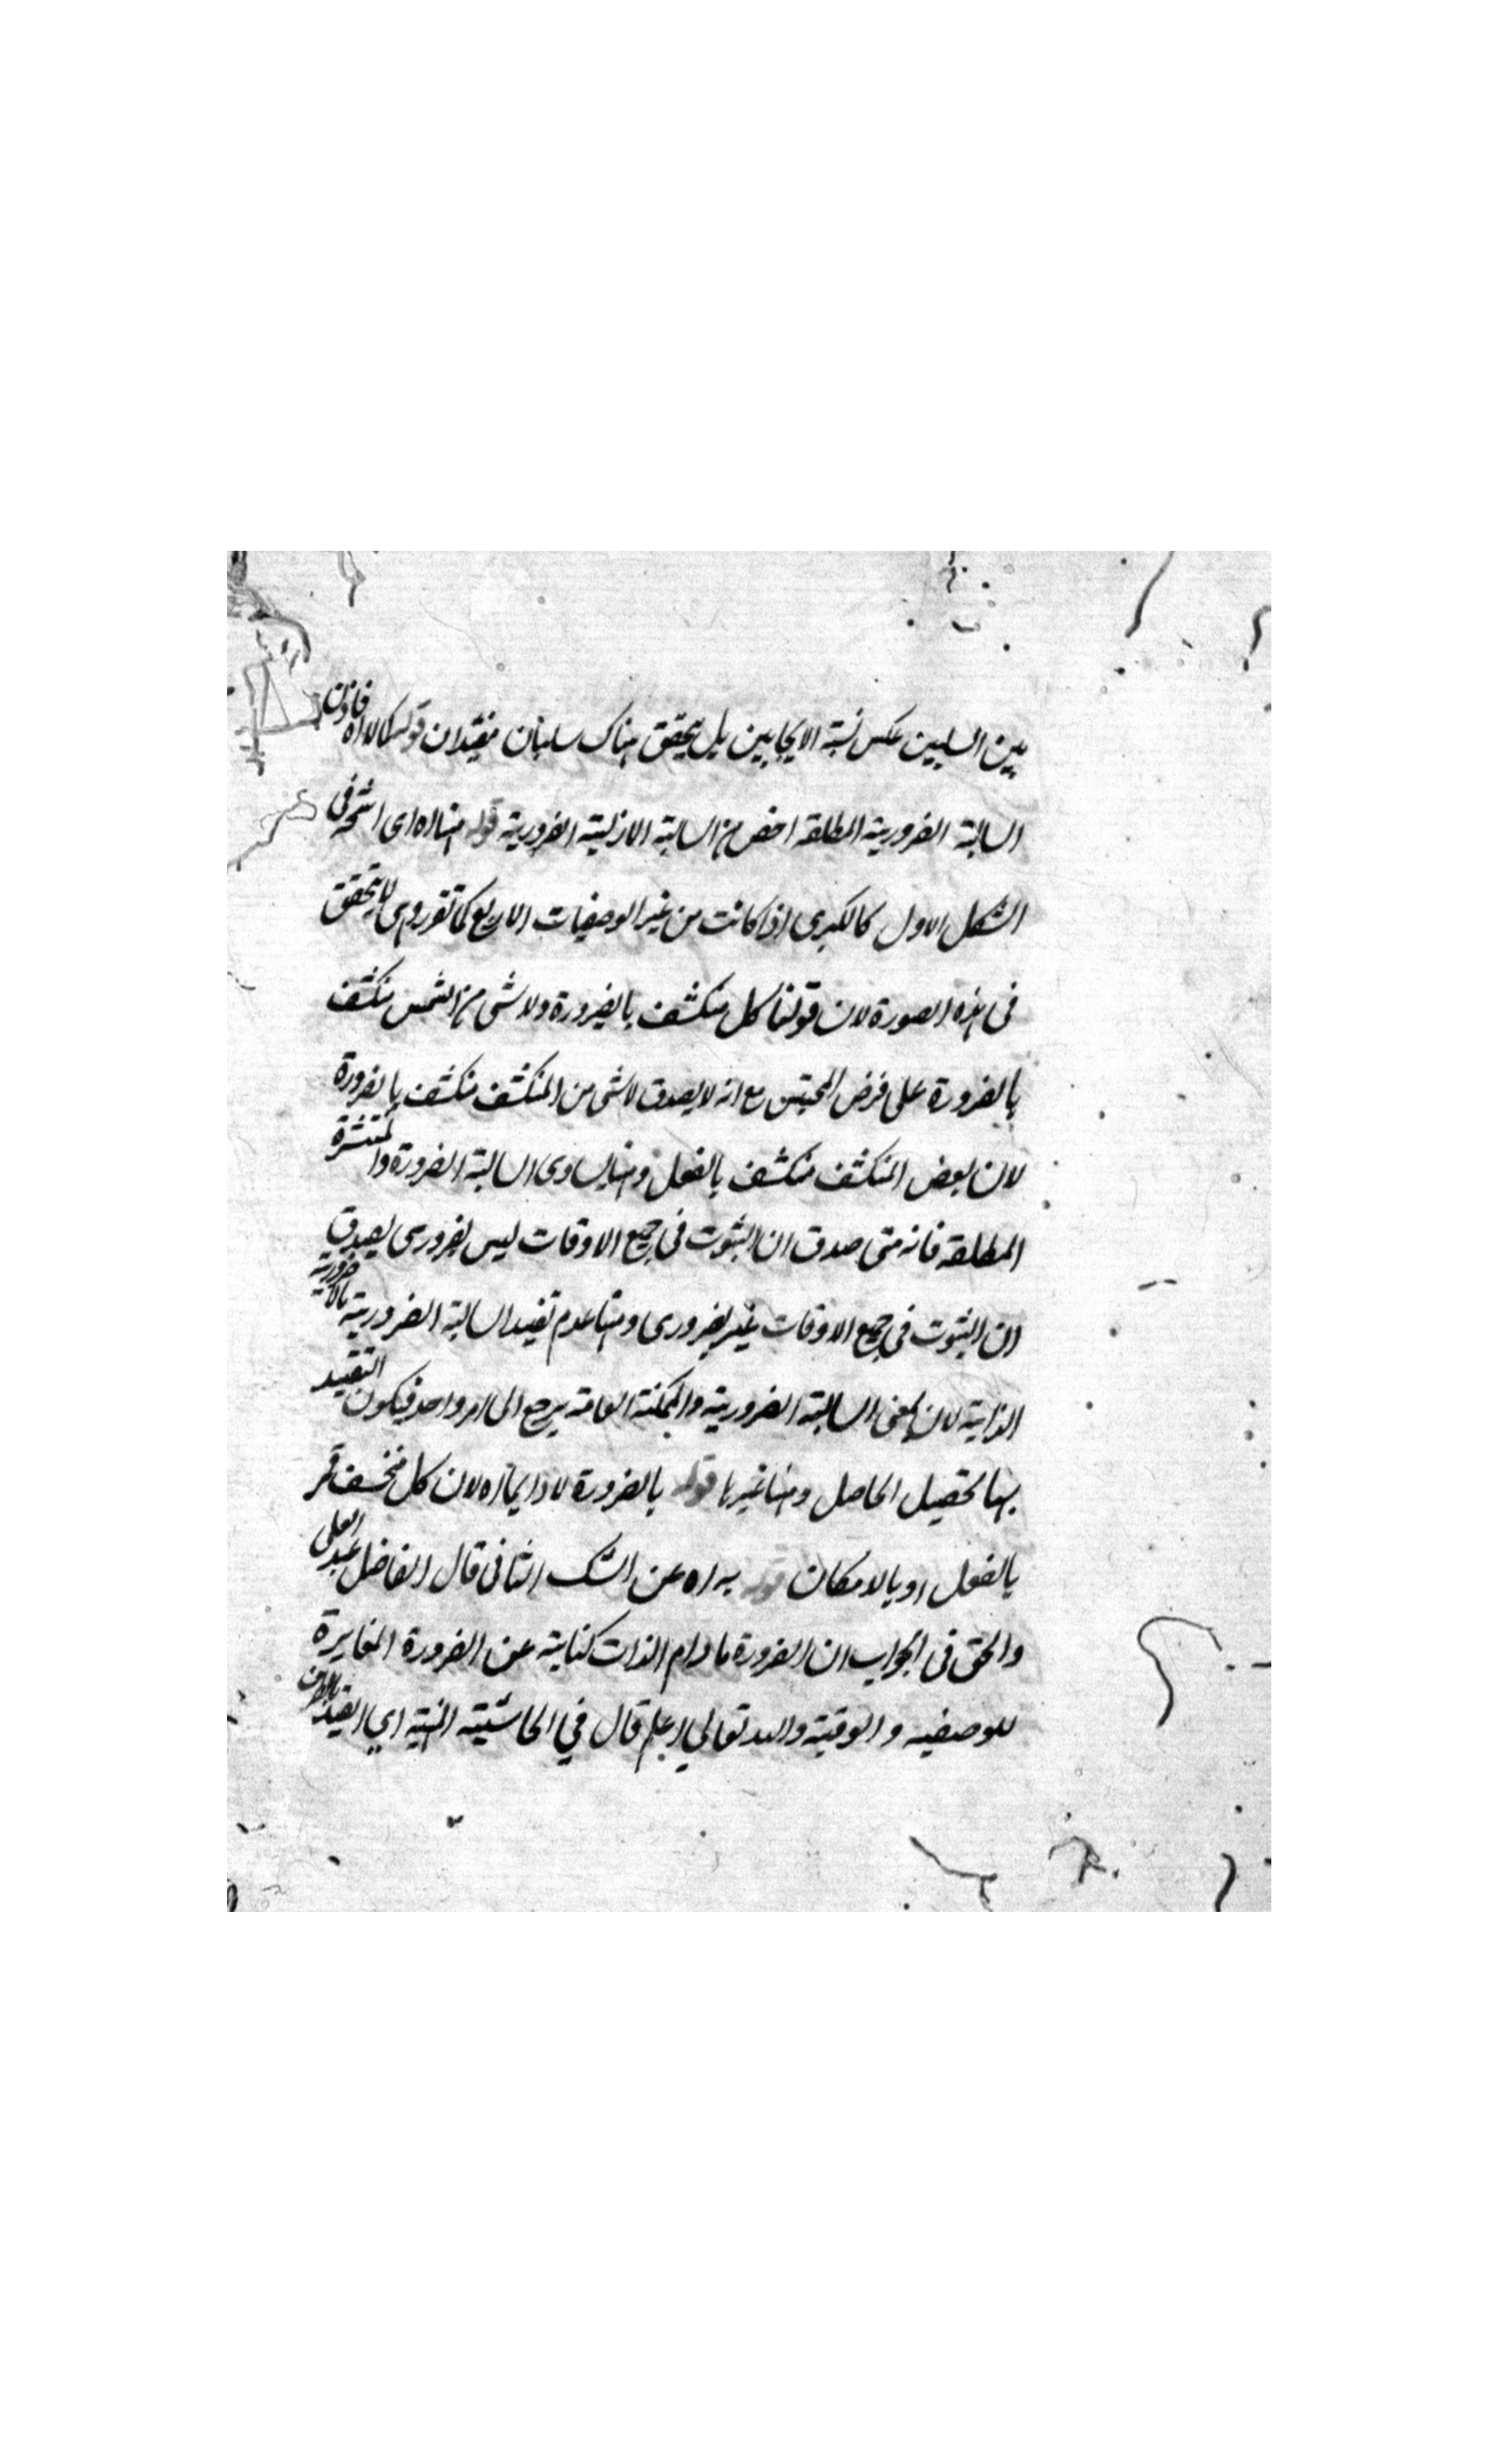 بين السلبين عكس نسبة الايجابين بل يتحقق هناك سلبان مقيدان قوله كالا اه فاذن
السالبة الضرورية المطلقة اخص من السالبة الازلية الضرورية قوله هنا اه اى فى
الشكل الاول كالكبرى اذا كانت من غير الوصفيات الاربع كما تقرر وهى لا يتحقق
فى هذه الصورة لان قولنا كل منكشف بالضرورة ولا شى من الشمس منكشف
بالضرورة على فرض مع انه لا يصدق لا شى من المنكشف منكشف بالضرورة
لان بعض المنكشف منكشف بالفعل ومنها تساوى السالبة الضرورة والمنتشرة
المطلقة فانه متى صدق ان الثبوت فى جميع الاوقات ليس بضرورى يصدق
ان الثبوت فى جميع الاوقات غير ضرورى ومنها عدم تقييد السالبة الضرورية بالاضرورية
الذاتية لان معنى السالبة الضرورية والممكنة العامة يرجع الى امر واحد فيكون التقييد
بها تحصيل الحاصل ومنها غيرها قوله بالضرورة لا دايما اه لان كل منخسف قمر
بالفعل او بالامكان قوله به اه عن الشك الثانى قال الفاضل عبد العلى
والحق فى الجواب ان الضرورة ما دام الذات كناية عن الضرورة المغايرة
للوصفيه و الوقتية والله تعالى اعلم قال في الحاشيته اي